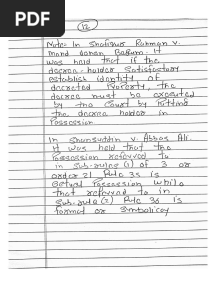 PDF
12
Note:- In Shafiqur Rahman v.
Mohd Jahan Begum. It
was held that if the
decree-holder Satisfactory
establish identity of
decreted Property, the
decree must be executed
by the Court by Putting
the decree holder in
Possession.
In Shamsuddin v. Abbas Ali.
it was held that the
Possession referred to
in Sub-rule (1) of 3 or
order 21 Rule 35 is
actual Possession while
that referred to in
Sub-rule (2) Rule 35 is
formal or Symbolicay